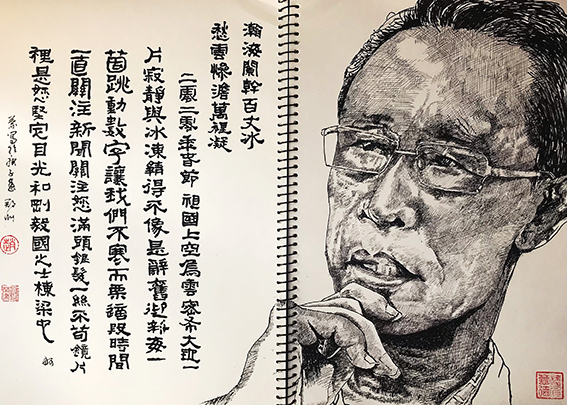 瀚海闌幹百丈冰
愁雲慘澹萬裡凝
二零二零年春節 祖國上空烏雲密布大地一
片寂靜與冰凍靜得不像是辭舊迎新每一
箇跳動數字讓我們不寒而栗這段時間
一直關注新聞關注您滿頭銀髮一絲不苟鏡片
裡是您堅定目光和剛毅國之棟梁也